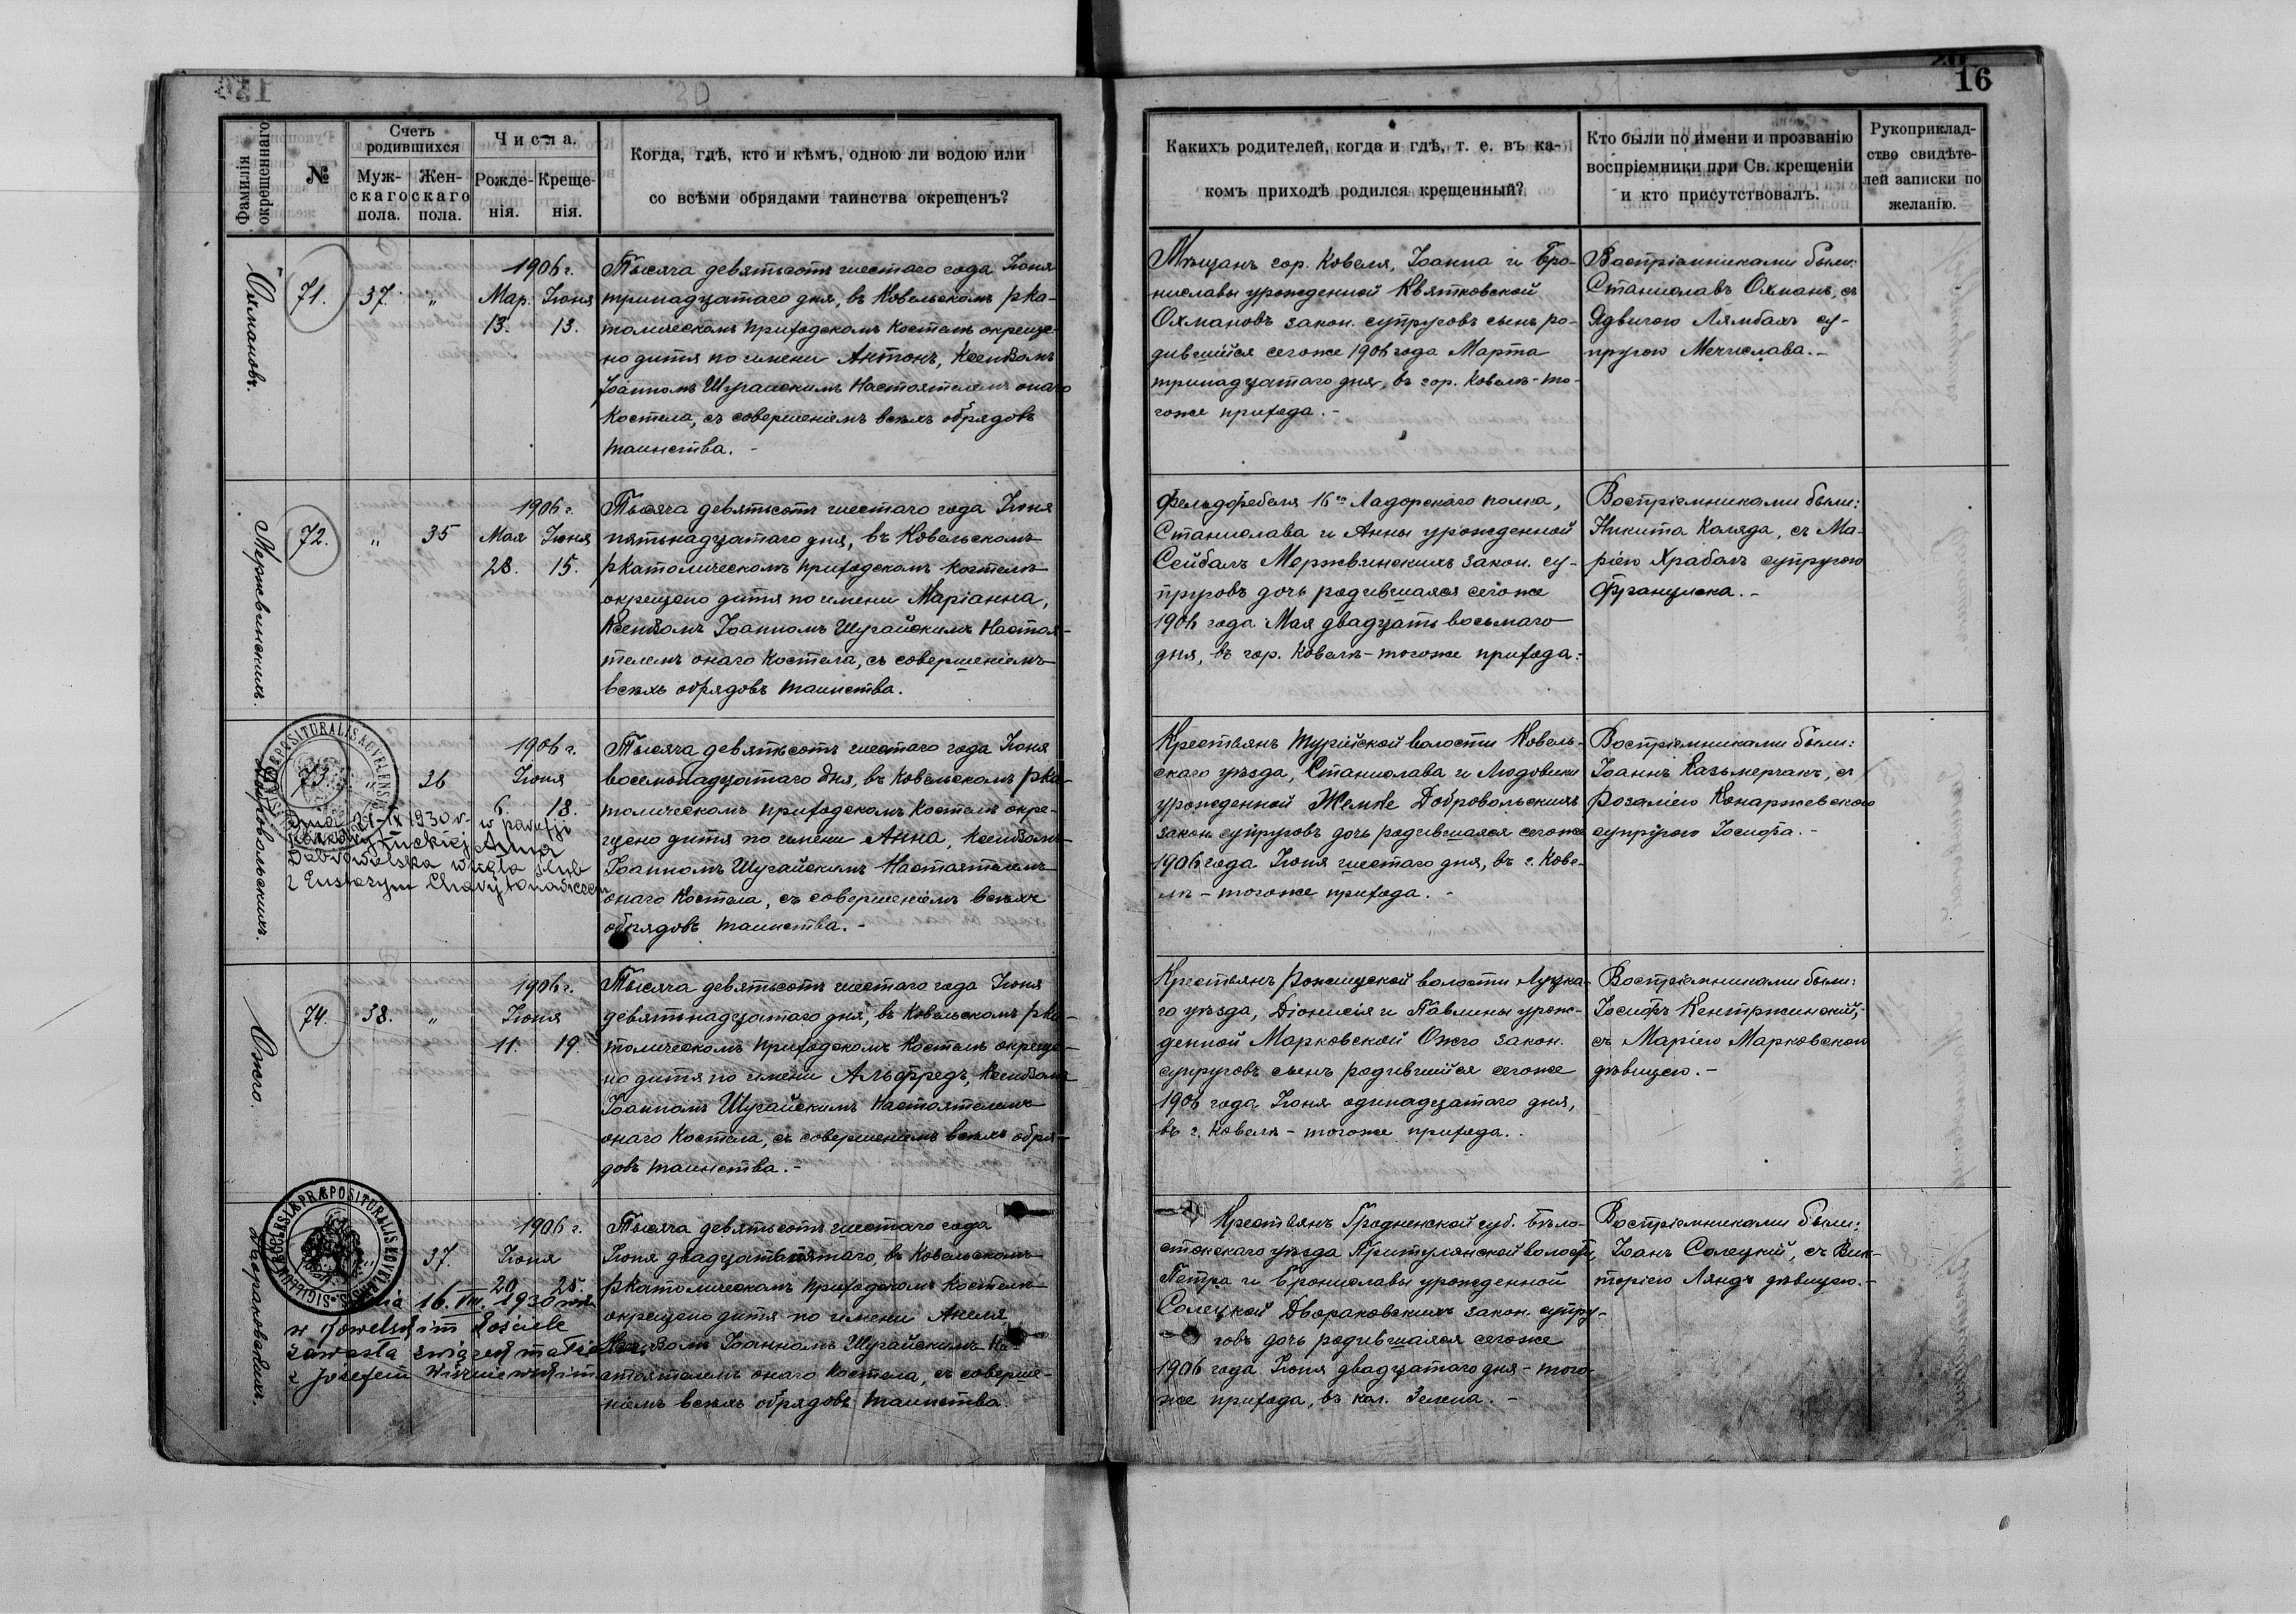 16
Фамилія окрещеннаго.
№
Счетъ родившихся
Муж-скаго пола.
Жен-скаго пола.
Числа.
Рожде-нія.
Креще-нія.
Когда, гдѣ, кто и кѣмъ, одною ли водою или
со всѣми обрядами таинства окрещенъ?
Какихъ родителей, когда и гдѣ, т. е. въ ка-
комъ приходѣ родился крещенный?
Кто были по имени и прозванію
воспріемники при Св. крещеніи
и кто присутствовалъ.
Рукоприклад-
ство свидѣте-
лей записки по
желанію.
Охмановъ.
71.
37.
"
1906 г.
Мар. Іюня
13. 13.
Тысяча девятьсотъ шестаго года Іюня
тринадцатаго дня, въ Ковельскомъ рка-
толическомъ приходскомъ костелѣ окреще-
но дитя по имени Антонъ, Ксендзомъ
Іоанномъ Шугайскимъ Настоятелемъ онаго
Костела, съ совершеніемъ всѣхъ обрядовъ
таинства. -
Мѣщанъ гор. Ковеля, Іоанна и Бро-
ниславы урожденной Квятковской
Охмановъ закон. супруговъ сынъ ро-
дившійся сегоже 1906 года Марта
тринадцатаго дня, въ гор. Ковелѣ - то-
гоже прихода. -
Воспріемниками были:
Станиславъ Охманъ, съ
Ядвигою Лямбахъ су-
пругою Мечислава. -
Мержвинскихъ.
72.
"
35
1906 г.
Мая Іюня
28. 15.
Тысяча девятьсотъ шестаго года Іюня
пятьнадцатаго дня, въ Ковельскомъ
ркатолическомъ приходскомъ костелѣ
окрещено дитя по имени Маріанна,
Ксендзомъ Іоанномъ Шугайскимъ Настоя-
телемъ онаго Костела, съ совершеніемъ
всѣхъ обрядовъ таинства.
Фельдфебеля 16го Ладожскаго полка,
Станислава и Анны урожденной
Сейбалъ Мержвинскихъ закон. су-
пруговъ дочь родившаяся сегоже
1906 года Мая двадцать восьмаго
дня, въ гор. Ковелѣ - тогоже прихода. -
Воспріемниками были:
Никита Коляда, съ Ма-
ріею Храбалъ супругою
Францишка. -
Добровольскихъ.
73.
"
36
1906 г.
Іюня
6. 18.
Dnia IX 1930 r. w parafji
Łuckiej Anna
Dobrowolska wzięła ślub
z Eustazym
Тысяча девятьсотъ шестаго года Іюня
восемнадцатаго дня, въ Ковельскомъ рка-
толическомъ приходскомъ костелѣ окре-
щено дитя по имени Анна, Ксендзомъ
Іоанномъ Шугайскимъ Настоятелемъ
онаго Костела, съ совершеніемъ всѣхъ
обрядовъ таинства. -
Крестьянъ Турійской волости Ковель-
скаго уѣзда, Станислава и Людовики
урожденной Жемке Добровольскихъ
закон. супруговъ дочь родившаяся сегоже
1906 года Іюня шестаго дня, въ г. Кове-
лѣ - тогоже прихода. -
Воспріемниками были:
Іоаннъ Казьмерчакъ, съ
Розаліею Конаржевскою
супругою Іосифа. -
Ожго.
74.
38.
"
1906 г.
Іюня
11. 19.
Тысяча девятьсотъ шестаго года Іюня
девятьнадцатаго дня, въ Ковельскомъ рка-
толическомъ приходскомъ костелѣ окреще-
но дитя по имени Альфредъ, Ксендзомъ
Іоанномъ Шугайскимъ Настоятелемъ
онаго Костела, съ совершеніемъ всѣхъ обря-
довъ таинства. -
Крестьянъ Рожищской волости Луцка-
го уѣзда, Діонисія и Павлины урож-
денной Марковской Ожго закон.
супруговъ сынъ родившійся сегоже
1906 года Іюня одинадцатаго дня,
въ г. Ковелѣ - тогоже прихода. -
Воспріемниками были:
Іосифъ Кентржинскій,
съ Маріею Марковскою
дѣвицею. -
Двораковскихъ.
SIGILLUM ECCLESIÆ PRÆPOSITURALIS KOVELENSIS
37.
1906 г.
Іюня
20 25.
Dnia 16. VIII. 1930 roku
w Kowelskim Kościele
zawarła związek małż.
z Józefem Wiśniewskim
Тысяча девятьсотъ шестаго года
Іюня двадцать пятаго, въ Ковельскомъ
ркатолическомъ приходскомъ костелѣ
окрещено дитя по имени Анеля,
Ксендзомъ Іоанномъ Шугайскимъ На-
стоятелемъ онаго Костела, съ соверше-
ніемъ всѣхъ обрядовъ таинства.
Крестьянъ Гродненской губ. Бѣло-
стокскаго уѣзда Притулянской волости,
Петра и Брониславы урожденной
Солецкой Двораковскихъ закон. супру-
говъ дочь родившаяся сегоже
1906 года Іюня двадцатаго дня - того-
же прихода, въ кол. Зелена. -
Воспріемниками были:
Іоанъ Солецкій, съ Вик-
торіею Ляндъ дѣвицею. -